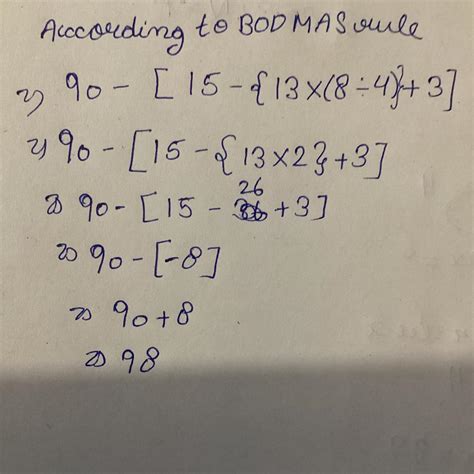 According to BODMAS rule
⇒ 90 - [ 15 - {13×(8÷4)}+3]
⇒ 90 - [15 - {13×2}+3]
⇒ 90 - [15 - 26 +3]
⇒ 90 - [-8]
⇒ 90 + 8
⇒ 98